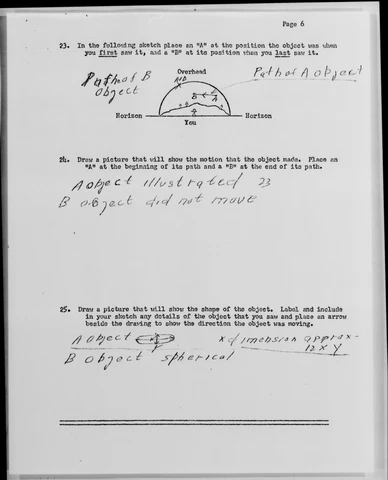 Page 6
23. In the following sketch place an "A" at the position the object was when
you first saw it, and a "B" at its position when you last saw it.
Path of B
object
Overhead
Path of A object
B
A
Horizon
Horizon
You
24. Draw a picture that will show the motion that the object made. Place an
"A" at the beginning of its path and a "B" at the end of its path.
A object illustrated 23
B object did not move
25. Draw a picture that will show the shape of the object. Label and include
in your sketch any details of the object that you saw and place an arrow
beside the drawing to show the direction the object was moving.
A object x dimension approx-
12 x y
B object spherical